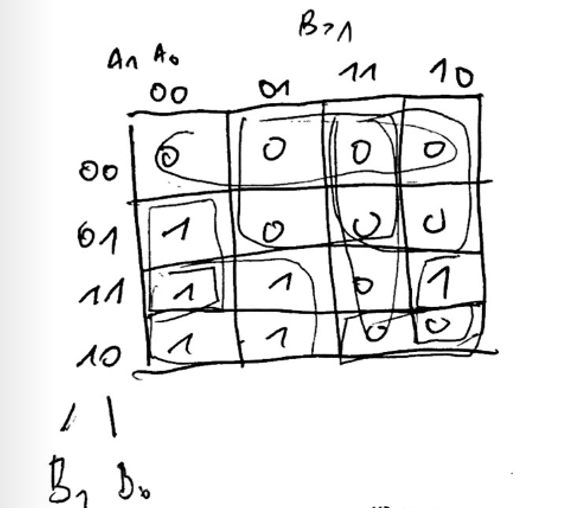 B>1
A1 A0
00 01 11 10
00 0 0 0 0
01 1 0 0 0
11 1 1 0 1
10 1 1 0 0
B1 B0